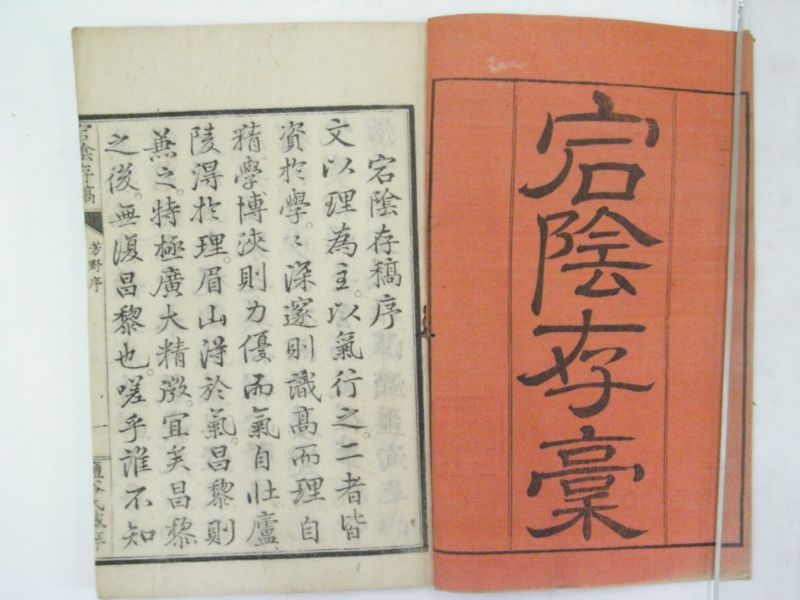 宕陰存稾
宕陰存稿序
文以理為主。以氣行之。二者皆
資於學。〻深邃則識高而理自
精。學博浹則力優而氣自壯。廬
陵淂於理。眉山淂於氣。昌黎則
兼之。特極廣大精微。宜矣昌黎
之後。無復昌黎也。嗟乎誰不知
宕陰存稿
芳野序
一